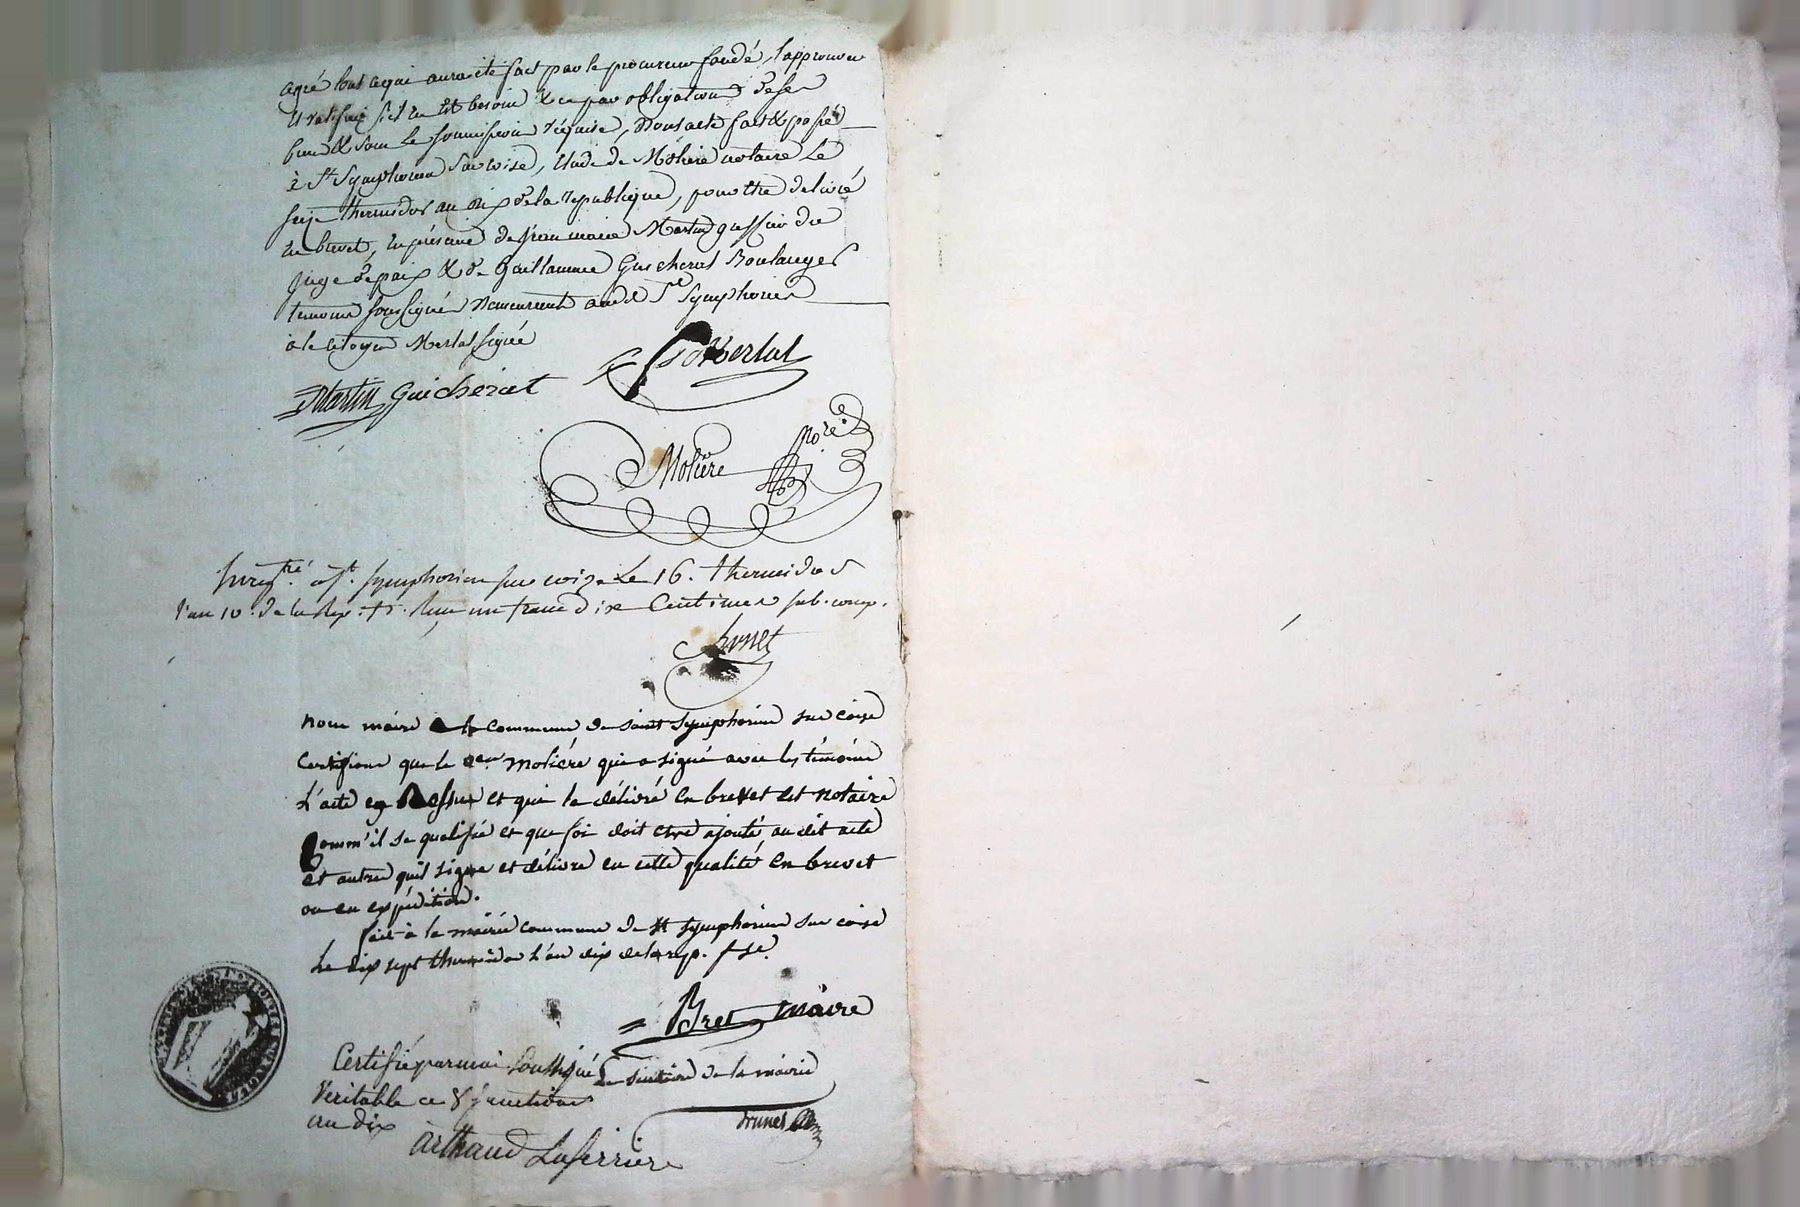 agré tout ce qui aura été fait par le procureur fondé, l'approuver
et ratifier s'il en est besoin & ce par obligation de ses
biens & sous les soumissions requise, Dont acte fait & passé
à St Symphorien sur coise, étude de Molière notaire Le
seize thermidor an dix de la republique, pour être délivré
en brevet, en présence de Jean marie Martin greffier du
juge de paix & de Guillaume Guicherat Boulanger
temoins soussignés demeurant audit St Symphorien
& le citoyen Merlat signé
Merlat
Martin Guicherat
Molière nore
Enregtré. à St. symphorien sur coize Le 16. thermidor
l'an 10. de la Rep. fs. Reçu un franc dix Centimes sub. comp.
Brunet
Nous maire de la commune de saint symphorien sur coise
Certifions que le cen. molière qui a signé avec les témoins
L'acte cy Dessus et qui l'a délivré en brevet est notaire
Comm'il se qualifie et que foi doit etre ajouté au dit acte
et autre qu'il signe et délivre en cette qualité en brevet
ou en expédition.
fait à la mairie commune de St symphorien sur coise
Le dix sept thermidor L'an dix de la rep. fse.
Bret maire
Certifié par moi soussigné
Le secrétaire de la mairie
Véritable ce 8 fructidor
an dix
Brunet
Arthaud Laferriere